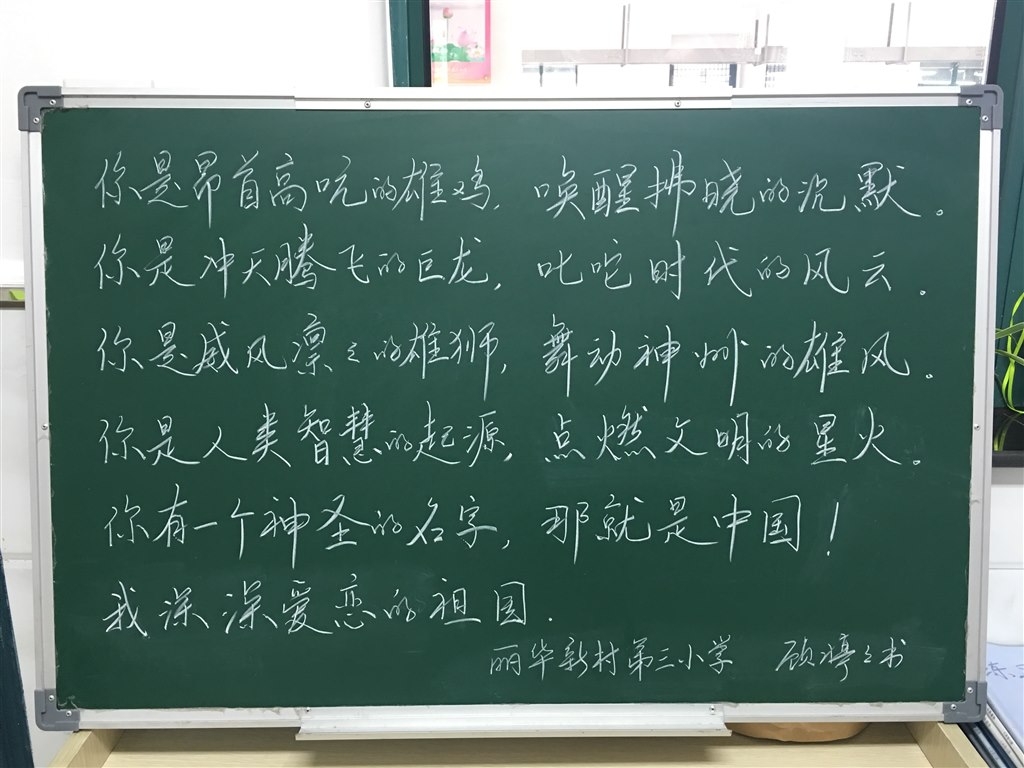 你是昂首高吭的雄鸡，唤醒拂晓的沉默。
你是冲天腾飞的巨龙，叱咤时代的风云。
你是威风凛々的雄狮，舞动神州的雄风。
你是人类智慧的起源，点燃文明的星火。
你有一个神圣的名字，那就是中国！
我深深爱恋的祖国．
丽华新村第三小学 顾婷々书